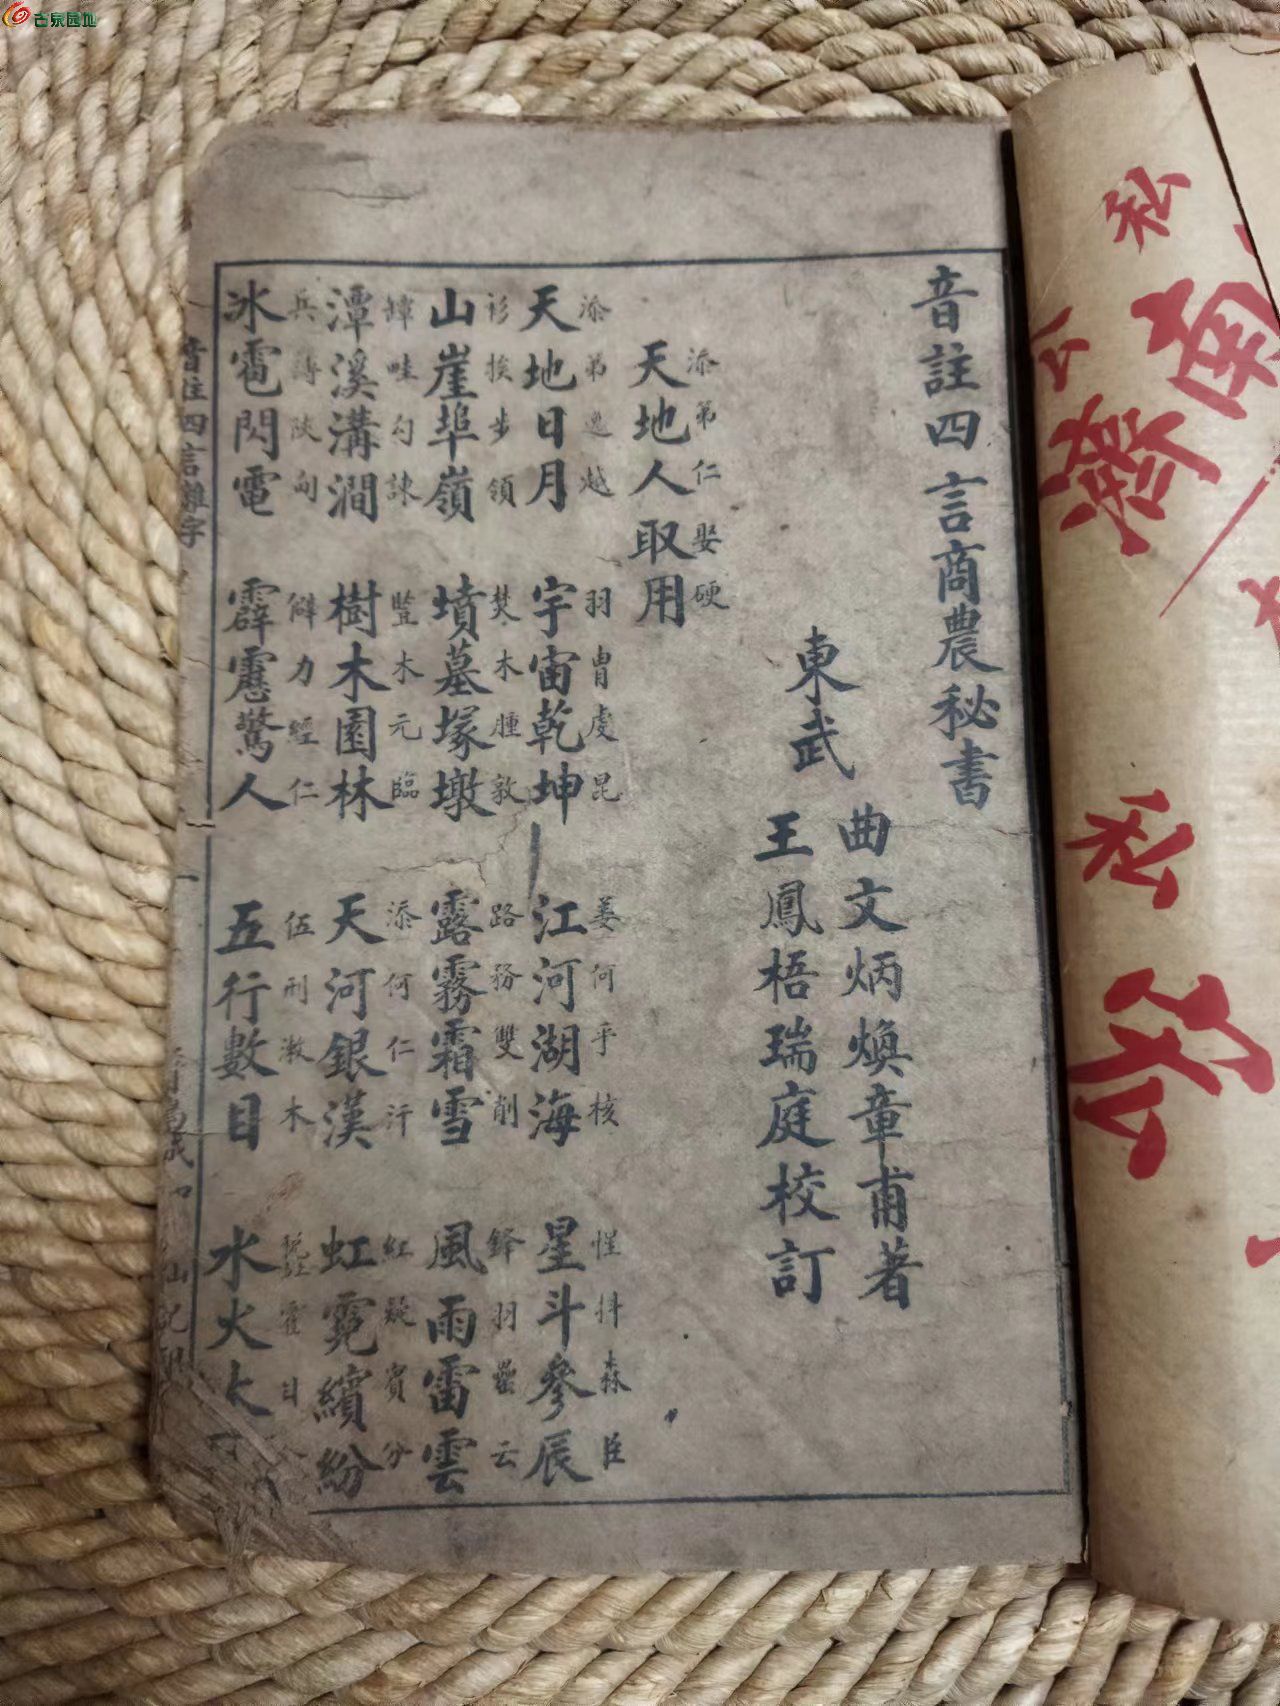 音註四言商農秘書
東武
曲文炳煥章甫著
王鳳梧瑞庭校訂
添第仁娶硬
天地人取用
添弟逸越 羽冑虔昆 姜何乎核 惺抖森臣
天地日月 宇宙乾坤 江河湖海 星斗參辰
衫挨步領 焚木腫敦 路務雙削 鋒羽壘云
山崖埠嶺 墳墓塚墩 露霧霜雪 風雨雷雲
畦勾諫 豎木元臨 添何仁汗 紅疑賓分
潭溪溝澗 樹木園林 天河銀漢 虹霓繽紛
兵陝甸 僻力經仁 伍刑漱木 霍
冰雹閃電 霹靂驚人 五行數目 水火木
音註四言雜字
一
古泉园地